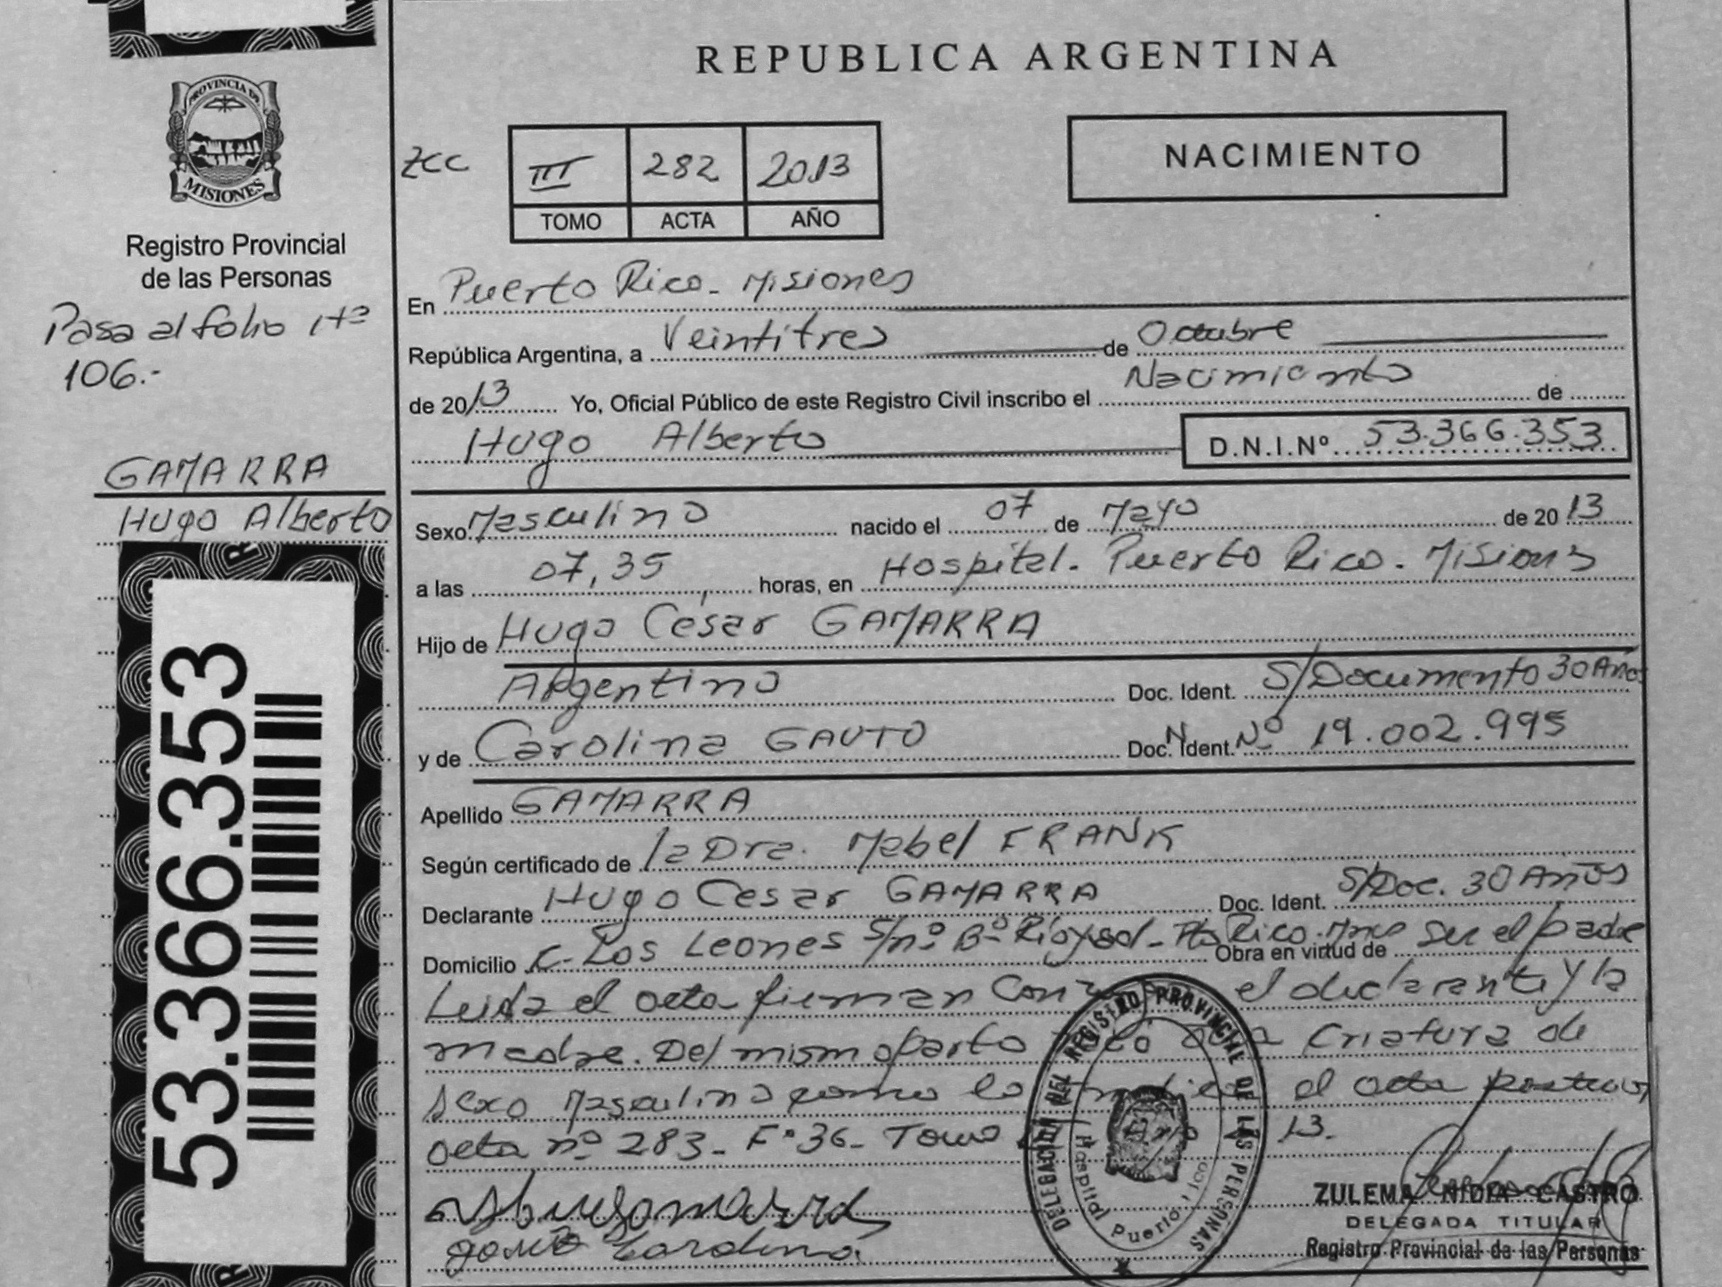 REPUBLICA ARGENTINA
PROVINCIA DE
MISIONES
Registro Provincial
de las Personas
Pasa al folio Nº
106.-
ZCC
III 282 2013
TOMO ACTA AÑO
NACIMIENTO
En Puerto Rico - Misiones
República Argentina, a Veintitres de Octubre
de 2013 Yo, Oficial Público de este Registro Civil inscribo el Nacimiento de
Hugo Alberto D.N.I.Nº 53.366.353
GAMARRA
Hugo Alberto
53.366.353
Sexo Masculino nacido el 07 de Mayo de 2013
a las 07,35 horas, en Hospital. Puerto Rico. Misiones
Hijo de Hugo César GAMARRA
Argentino Doc. Ident. S/Documento 30 Años
y de Carolina GAUTO Doc. Ident. Nº 19.002.995
Apellido GAMARRA
Según certificado de la Dra. Mabel FRANK
Declarante Hugo Cesar GAMARRA Doc. Ident. S/Doc. 30 Años
Domicilio C. Los Leones S/nº Bº Rio y sol - Pto Rico. Mnes Obra en virtud de ser el padre
Leida el acta firman el declarante y la
madre. Del mismo parto criatura de
sexo Masculino como lo el acta
acta nº 283 - Fº 36 - Tomo 13.
DELEGACION DEL REGISTRO PROVINCIAL DE LAS PERSONAS
Hospital Puerto Rico
ZULEMA NIDIA CASTRO
DELEGADA TITULAR
Registro Provincial de las Personas